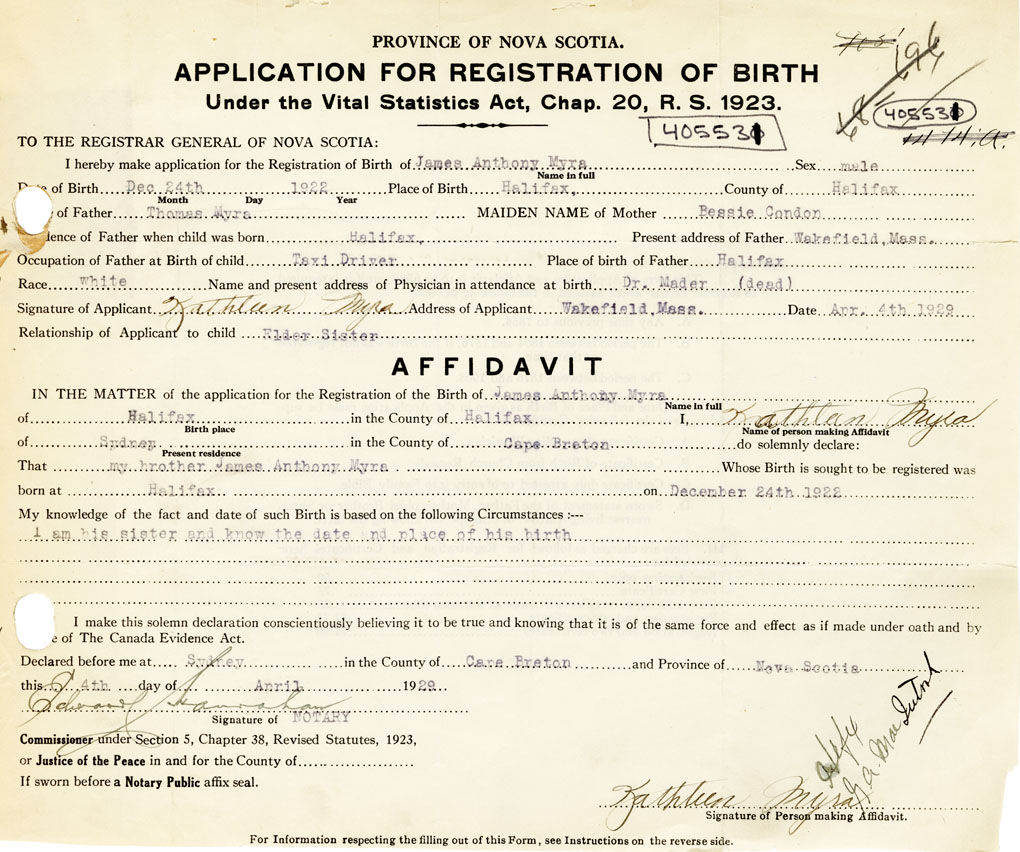 PROVINCE OF NOVA SCOTIA.
APPLICATION FOR REGISTRATION OF BIRTH
Under the Vital Statistics Act, Chap. 20, R. S. 1923.
405531
405531
TO THE REGISTRAR GENERAL OF NOVA SCOTIA:
I hereby make application for the Registration of Birth of James Anthony Myra Sex male
Name in full
e of Birth Dec 24th 1922 Place of Birth Halifax, County of Halifax
Month Day Year
of Father Thomas Myra MAIDEN NAME of Mother Bessie Condon
dence of Father when child was born Halifax, Present address of Father Wakefield, Mass.
Occupation of Father at Birth of child Taxi Driver Place of birth of Father Halifax
Race white Name and present address of Physician in attendance at birth Dr. Mader (dead)
Signature of Applicant Kathleen Myra Address of Applicant Wakefield, Mass. Date Apr. 4th 1929
Relationship of Applicant to child Elder Sister
AFFIDAVIT
IN THE MATTER of the application for the Registration of the Birth of James Anthony Myra
Name in full
of Halifax in the County of Halifax I, Kathleen Myra
Birth place Name of person making Affidavit
of Sydney in the County of Cape Breton do solemnly declare:
Present residence
That my brother James Anthony Myra Whose Birth is sought to be registered was
born at Halifax on December 24th 1922
My knowledge of the fact and date of such Birth is based on the following Circumstances :---
I am his sister and know the date and place of his birth
I make this solemn declaration conscientiously believing it to be true and knowing that it is of the same force and effect as if made under oath and by
e of The Canada Evidence Act.
Declared before me at Sydney in the County of Cape Breton and Province of Nova Scotia
this 4th day of April 1929
Edward
Signature of NOTARY
Commissioner under Section 5, Chapter 38, Revised Statutes, 1923,
or Justice of the Peace in and for the County of
If sworn before a Notary Public affix seal.
Kathleen Myra
Signature of Person making Affidavit.
For Information respecting the filling out of this Form, see Instructions on the reverse side.